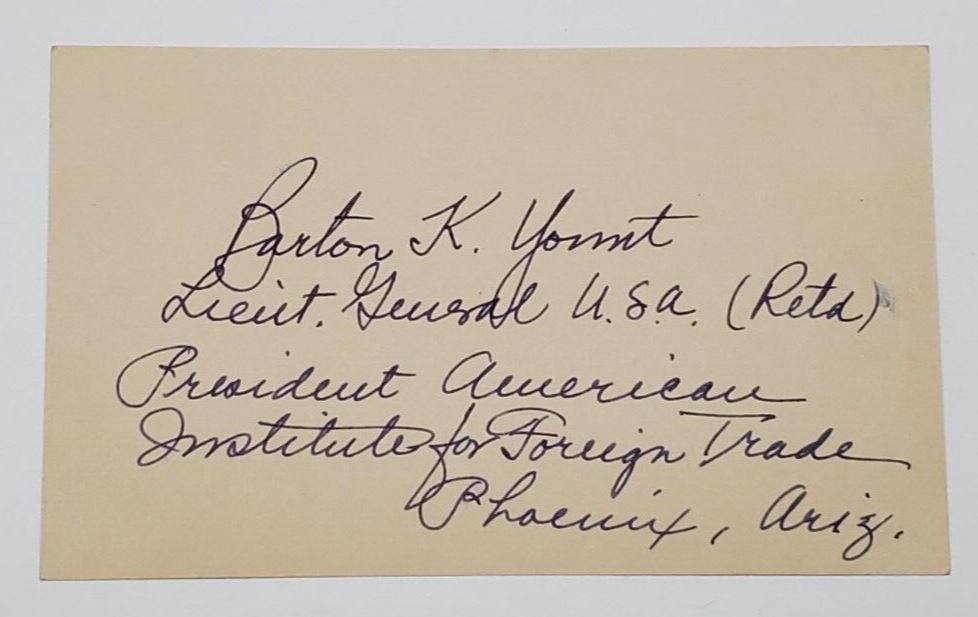 Barton K. Yount
Lieut. General U.S.A. (Retd)
President American
Institute for Foreign Trade
Phoenix, Ariz.